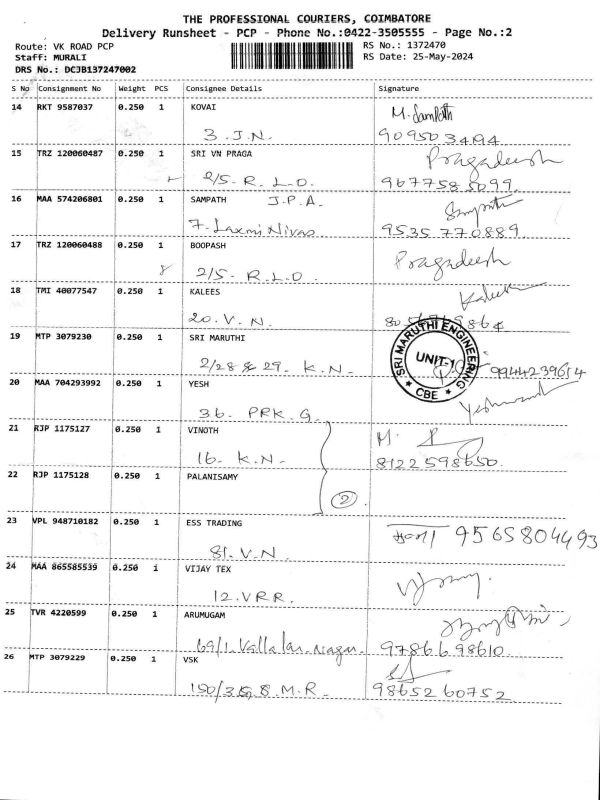 THE PROFESSIONAL COURIERS, COIMBATORE
Delivery Runsheet - PCP - Phone No.:0422-3505555 - Page No.:2
Route: VK ROAD PCP RS No.: 1372470
Staff: MURALI RS Date: 25-May-2024
DRS No.: DCJB137247002
S No Consignment No Weight PCS Consignee Details Signature
14 RKT 9587037 0.250 1 KOVAI M. Sampath
3. J.N. 9095034194
15 TRZ 120060487 0.250 1 SRI VN PRAGA Pragadeesh
2/5- R.L.O. 9677585099
16 MAA 574206801 0.250 1 SAMPATH J.P.A. Sampath
7. Laxmi Nivas 9535770889
17 TRZ 120060488 0.250 1 BOOPASH Pragadeesh
8 2/5- R.L.O.
18 TMI 40077547 0.250 1 KALEES
20. V.N.
19 MTP 3079230 0.250 1 SRI MARUTHI SRI MARUTHI ENGINEERING UNIT-1 * CBE *
2/28 & 29. K.N. 9944239614
20 MAA 704293992 0.250 1 YESH Yeshwanth
36. PRK.G.
21 RJP 1175127 0.250 1 VINOTH M.
16. K.N. 8122598650
22 RJP 1175128 0.250 1 PALANISAMY
2
23 VPL 948710182 0.250 1 ESS TRADING 9565804493
81. V.N.
24 MAA 865585539 0.250 1 VIJAY TEX
12. V.R.R.
25 TVR 4220599 0.250 1 ARUMUGAM
69/1. Vallalar Nagar 9786698610
26 MTP 3079229 0.250 1 VSK
M.R. 9865260752